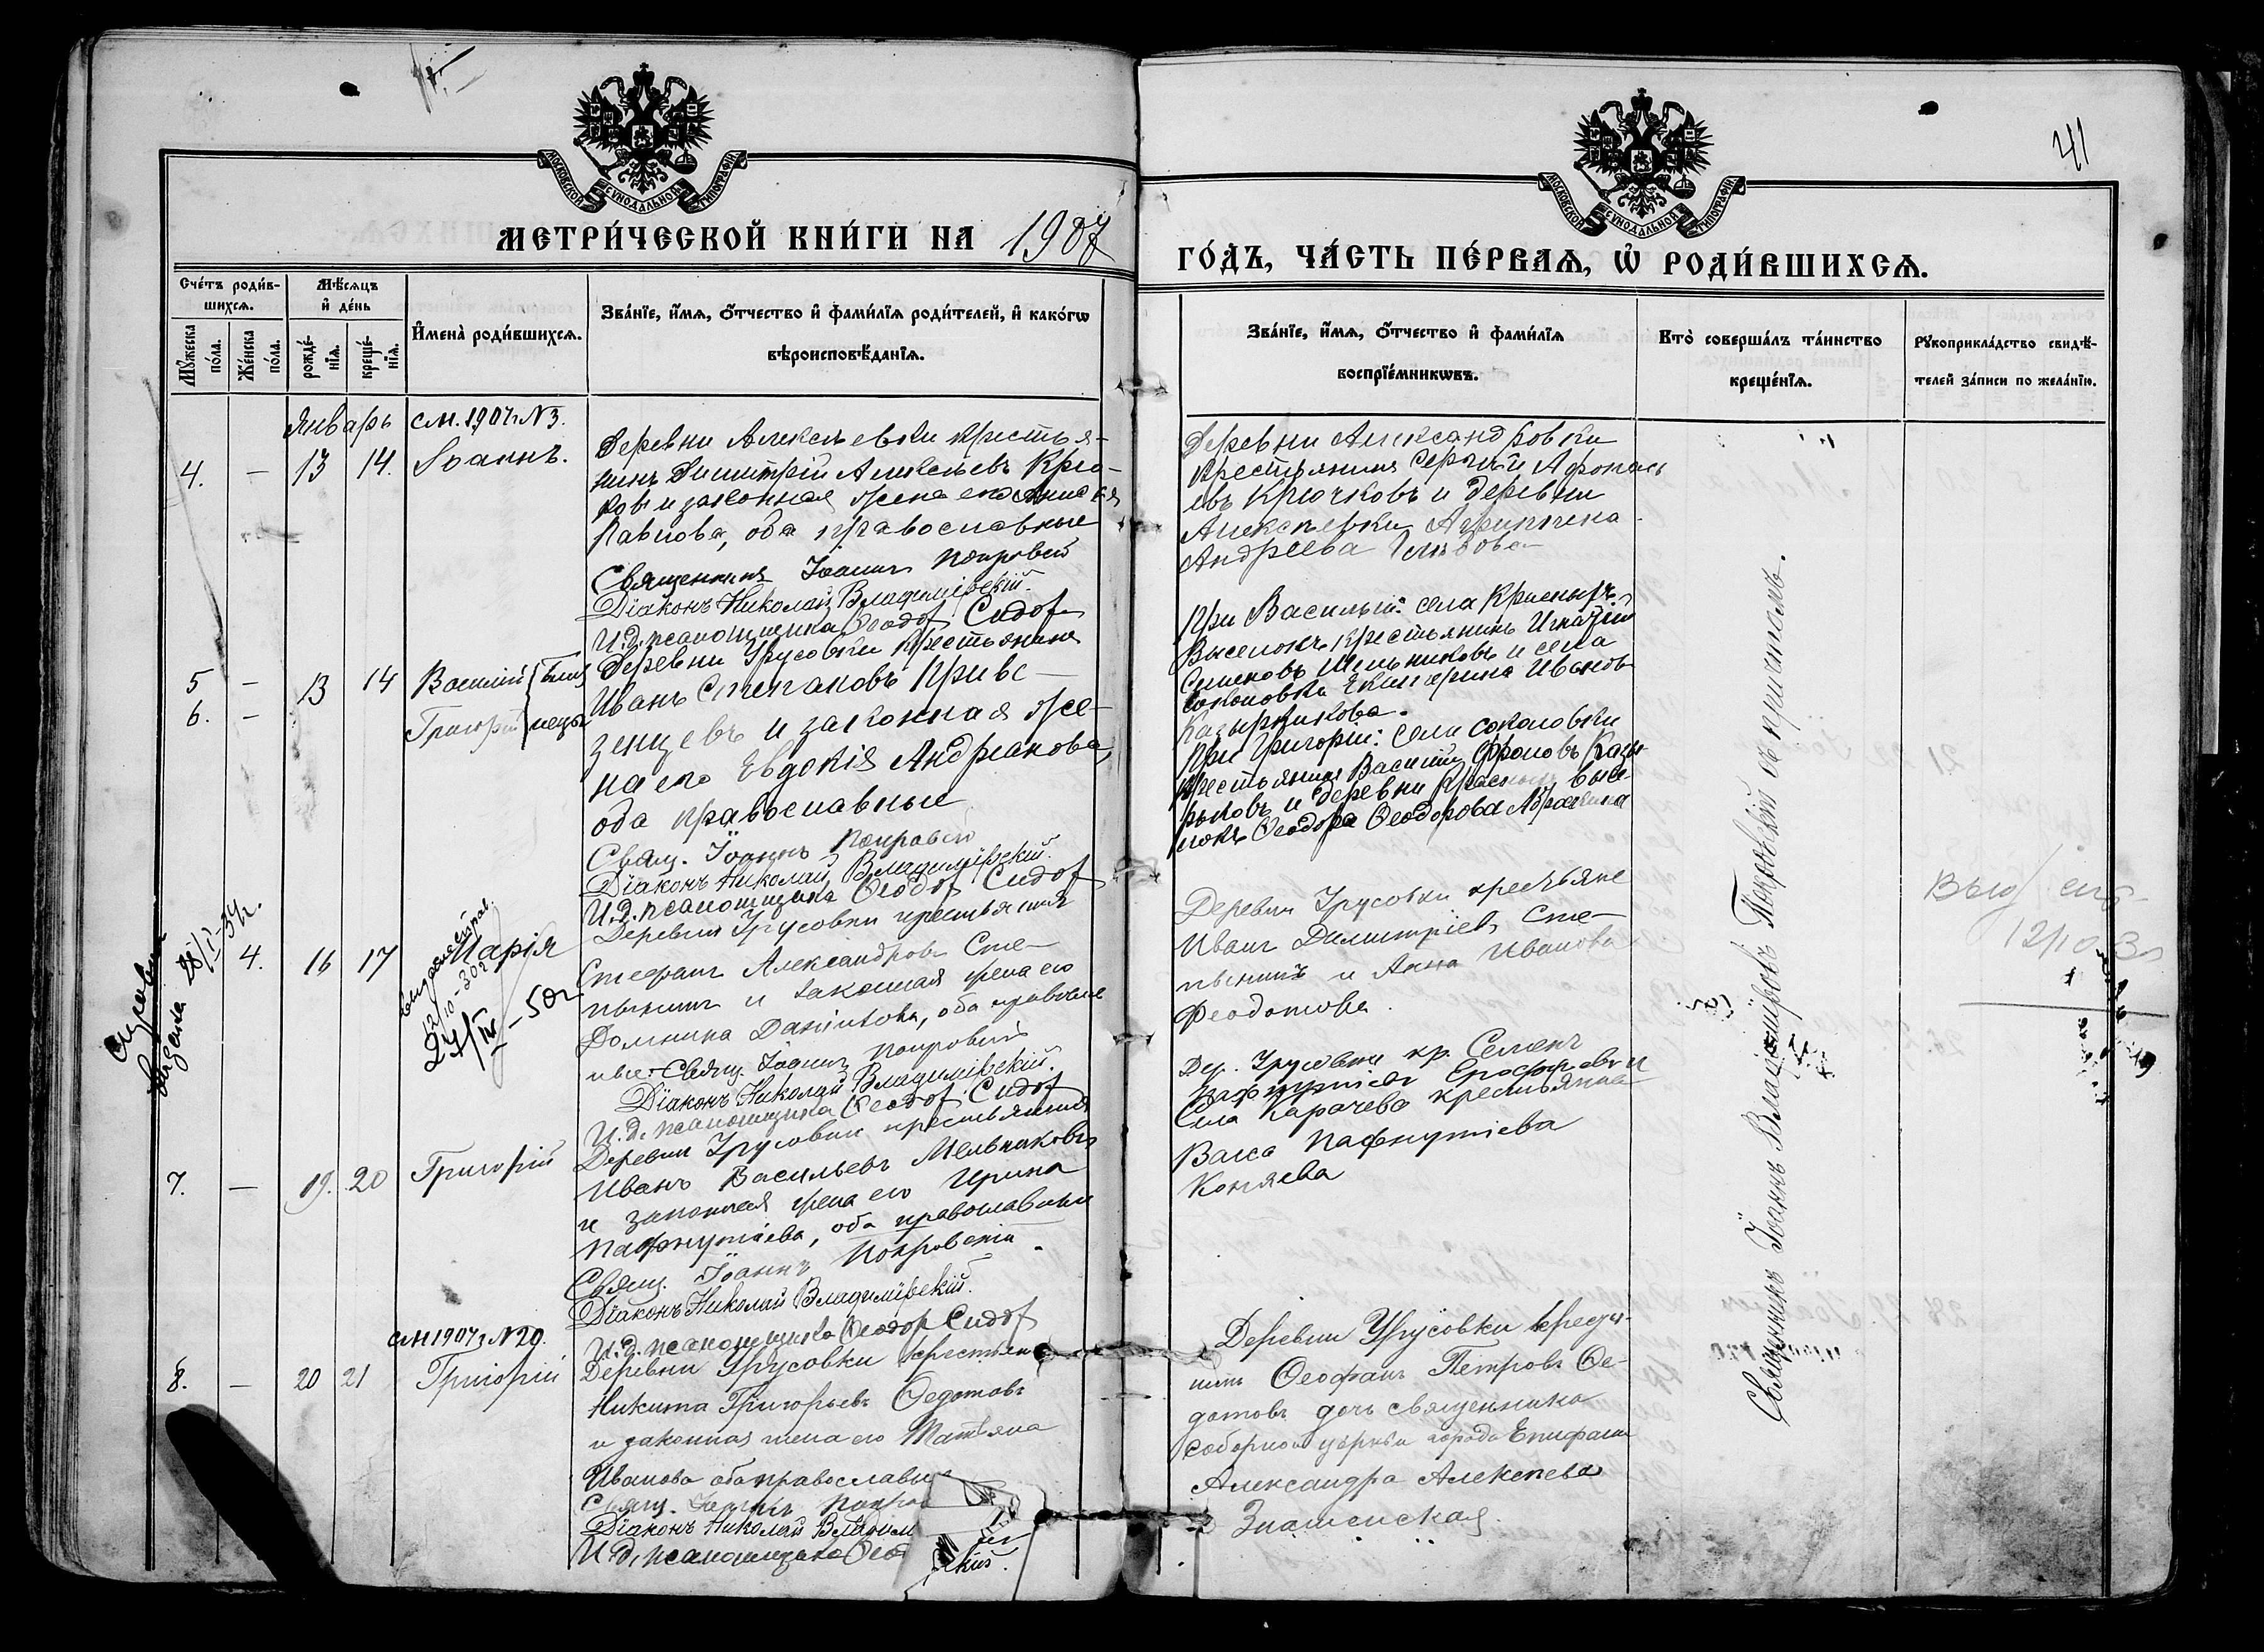 41
МОСКОВСКОЙ СѴНОДАЛЬНОЙ ТИПОГРАФІИ
МОСКОВСКОЙ СѴНОДАЛЬНОЙ ТИПОГРАФІИ
МЕТРИ́ЧЕСКОЙ КНИ́ГИ НА 1907
ГО́ДЪ, ЧА́СТЬ ПЕ́РВАѦ, Ѡ҆ РОДИ́ВШИХСѦ.
Сче́тъ роди́в-
шихсѧ.
Мꙋ́жеска по́ла.
Же́нска по́ла.
Мѣ́сѧцъ
и҆ де́нь
рожде́-
нїѧ.
креще́-
нїѧ.
И҆мена̀ роди́вшихсѧ.
Зва́нїе, и҆́мѧ, ѻ҆́тчество и҆ фами́лїѧ роди́телей, и҆ како́гѡ
вѣроисповѣ́данїѧ.
Зва́нїе, и҆́мѧ, ѻ҆́тчество и҆ фами́лїѧ
воспрїе́мникѡвъ.
Кто̀ соверша́лъ та́инство
креще́нїѧ.
Рꙋкоприкла́дство свидѣ́-
телей за́писи по жела́нїю.
Январь
см. 1907 г N 3.
4. — 13 14. Іоаннъ.
Деревни Алексѣевки крестья-
нинъ Димитрій Алексѣевъ Крю-
ковъ и законная жена его Анисія
Павлова, оба православные
Священникъ Іоаннъ Покровскій
Діаконъ Николай Владимірскій.
И. д. псаломщика Ѳеодоръ Сидоръ
Деревни Александровки
Крестьянинъ Сергѣй Афонась
евъ Крючковъ и деревни
Алексѣевки Агриппина
Андреева
5 — 13 14 Василій близ
6. — Григорій нецы
Деревни Урусовки Крестьянинъ
Иванъ Степановъ Приве-
зенцевъ и законная же-
на его Евдокія Андріанова,
оба православные
Свящ. Іоаннъ Покровскій
Діаконъ Николай Владимірскій.
И. д. псаломщика Ѳеодоръ Сидоръ
При Василіи: села Красныхъ
Выселокъ крестьянинъ Игнатій
Семеновъ Мельниковъ и села
Соколовки Екатерина Иванова
При Григоріи: села Соколовки
Крестьянинъ Василій Фроловъ Казы-
рковъ и деревни Красныхъ высе-
локъ Ѳеодора Ѳеодорова Абрамкина
4. 16 17 Марія
27/IV – 50 г.
Деревни Урусовки крестьянинъ
Стефанъ Александровъ Сте-
пынинъ и законная жена его
Домника Даніилова, оба православ
ные Свящ. Іоаннъ Покровскій
Діаконъ Николай Владимірскій.
И. д. псаломщика Ѳеодоръ Сидоръ
Деревни Урусовки крестьяне
Иванъ Димитріевъ Сте-
пынинъ и Анна Иванова
Феодотова.
7. — 19. 20 Григорій
Деревни Урусовки крестьянинъ
Иванъ Васильевъ Мельниковъ
и законная жена его Ирина
Пафнутіева, оба православные
Свящ. Іоаннъ Покровскій.
Діаконъ Николай Владимірскій.
И. д. псаломщика Ѳеодоръ Сидоръ
Дер. Урусовки кр. Семенъ
Пафнутіевъ Ерофеевъ и
Села Карачева крестьянка
Васса Пафнутіева
Коняева
см 1907 г N 20.
8. — 20 21 Григорій
Деревни Урусовки крестьян
Никита Григорьевъ Ѳедотовъ
и законная жена его Татьяна
Иванова оба православн
Свящ. Іоаннъ Покров
Діаконъ Николай Владим
И. д. псаломщика Ѳеод
Деревни Урусовки крестья-
нинъ Ѳеофанъ Петровъ Ѳе-
дотовъ дочь священника
соборной церкви города Епифани
Александра Алексѣева
Знаменская.
Священникъ Іоаннъ Владиміровъ Покровскій съ причтомъ.